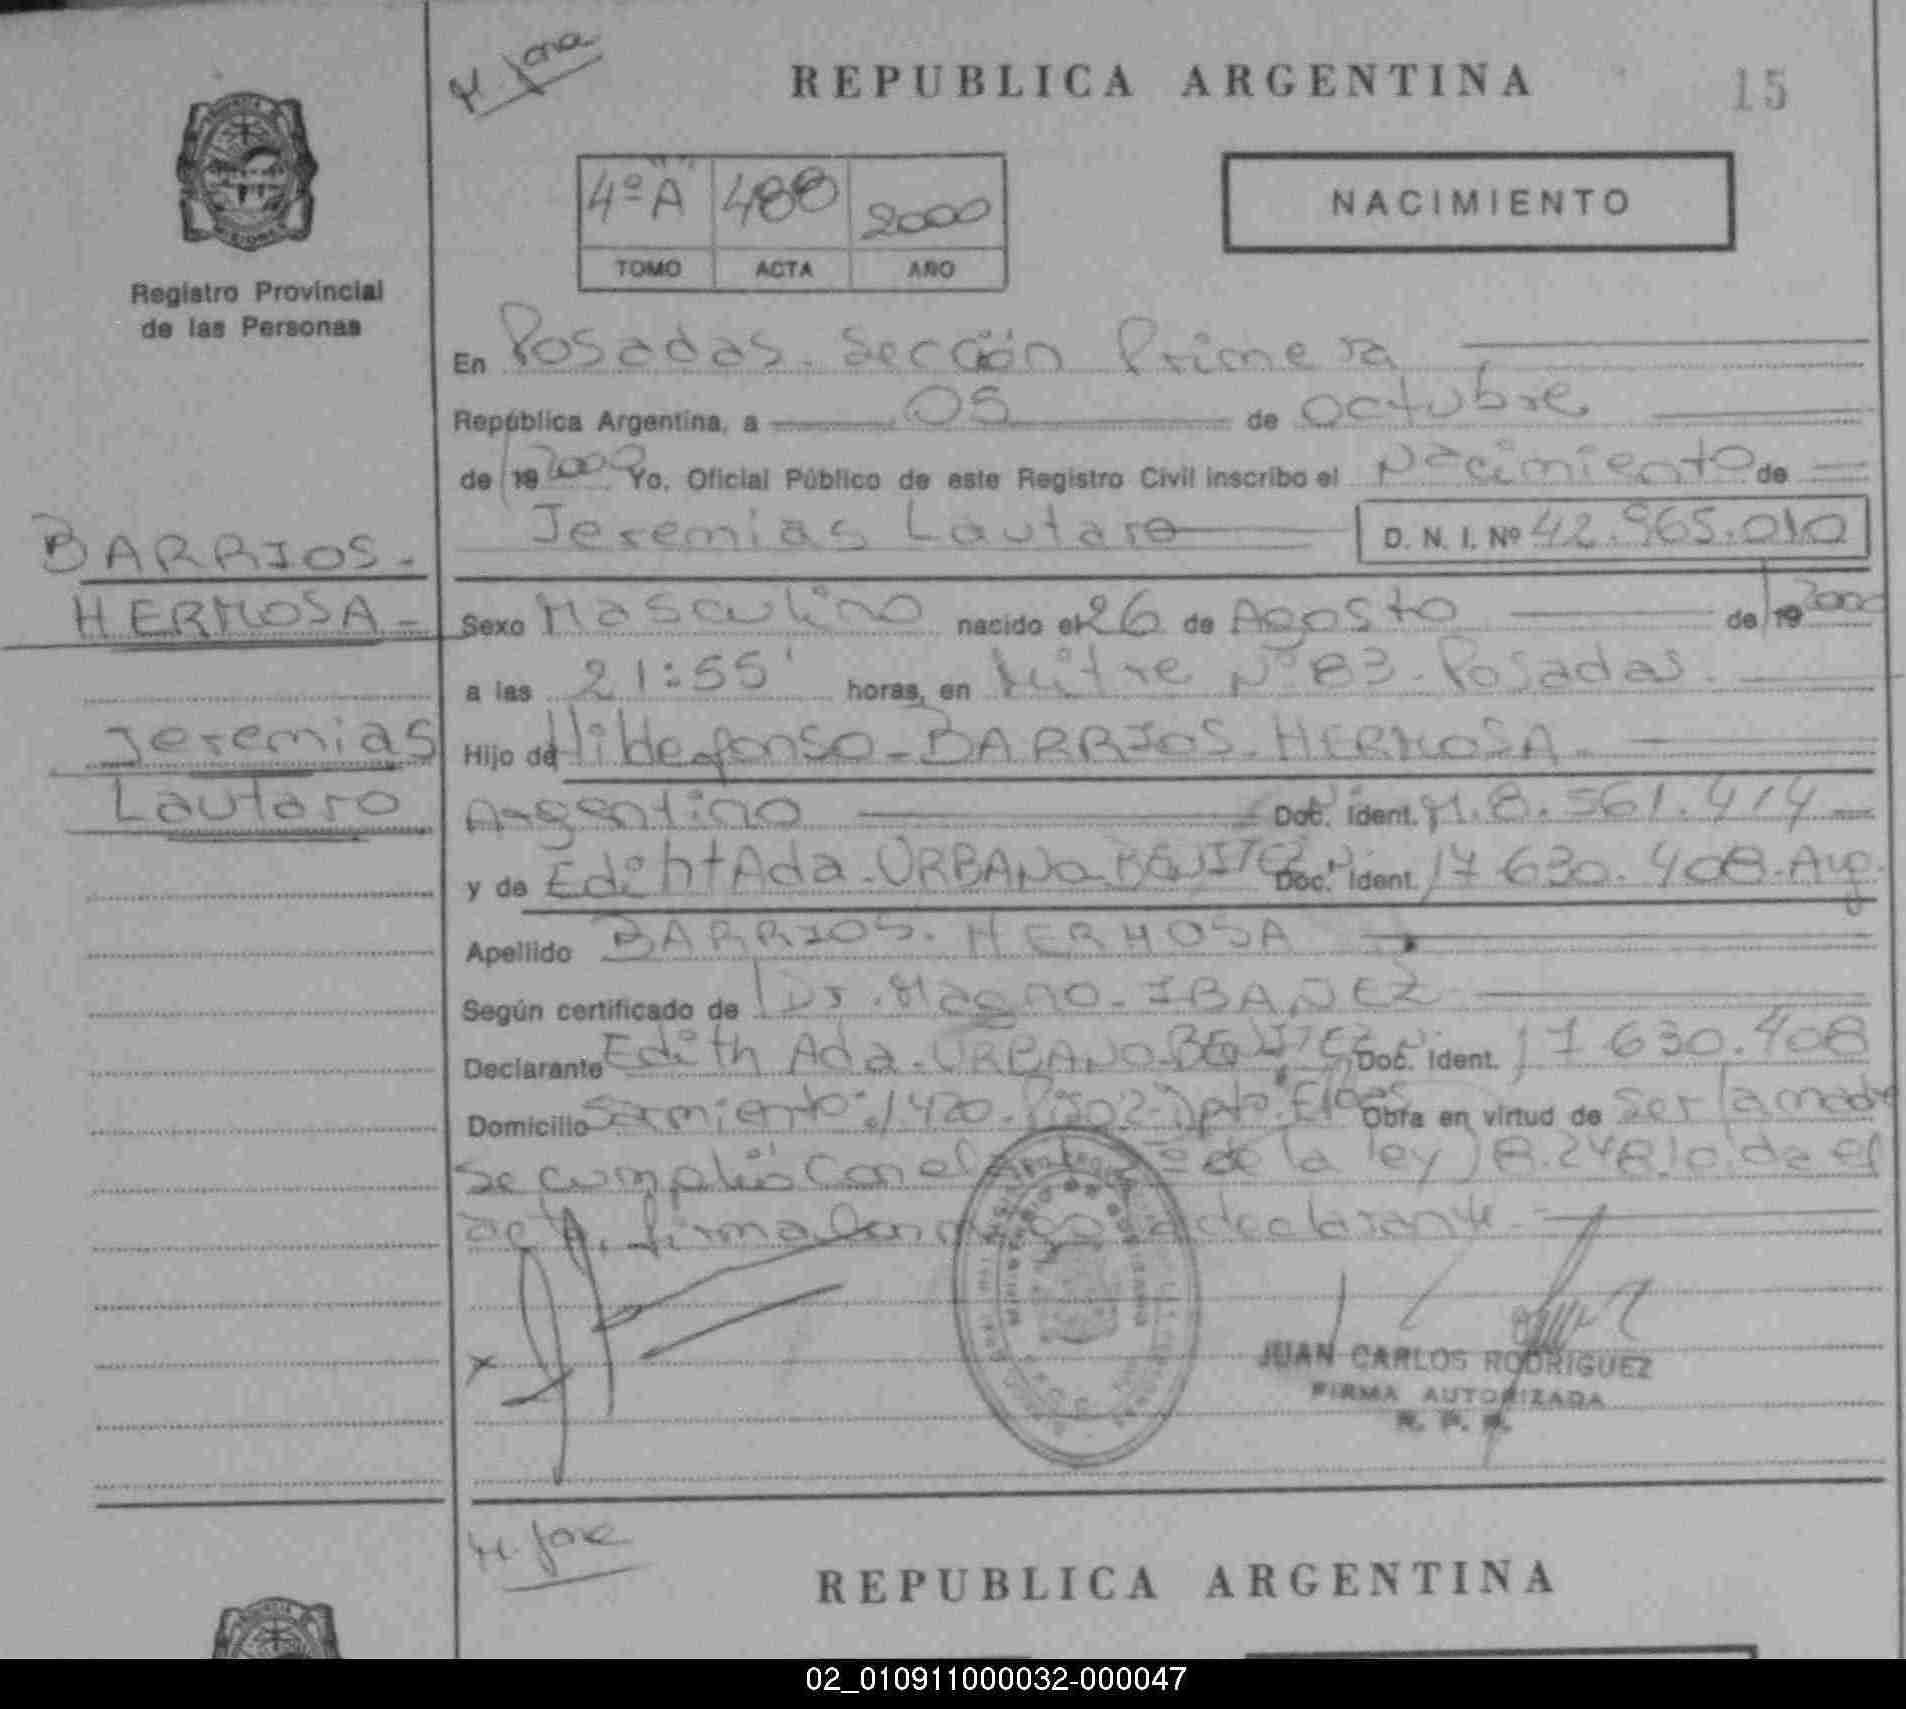 M. Jose
REPUBLICA ARGENTINA
15
4º "A" 488 2000
TOMO ACTA AÑO
NACIMIENTO
Registro Provincial
de las Personas
En Posadas. Sección Primera
República Argentina, a 05 de octubre
de 19 2000 Yo, Oficial Público de este Registro Civil inscribo el Nacimiento de
Jeremias Lautaro D. N. I. Nº 42.965.010
BARRIOS-
HERMOSA-
Jeremias
Lautaro
Sexo Masculino nacido el 26 de Agosto de 19 2000
a las 21:55' horas, en Mitre Nº 83. Posadas.
Hijo de Hildefonso-BARRIOS-HERMOSA-
Argentino Doc. Ident. M. 8.561.414
y de Ediht Ada-URBANO-BENITEZ Doc. Ident. 17 630.408-Arg.
Apellido BARRIOS-HERMOSA
Según certificado de Dr. Magno-IBAÑEZ
Declarante Edith Ada-URBANO-BENITEZ Doc. Ident. 17 630.408
Domicilio Sarmiento 1420- Piso 2- Dpto. Obra en virtud de ser la madre
Se cumplió con el de la ley 18.248.
acta, firma declarante
JUAN CARLOS RODRIGUEZ
FIRMA AUTORIZADA
R. P. P.
M. Jose
REPUBLICA ARGENTINA
02_010911000032-000047